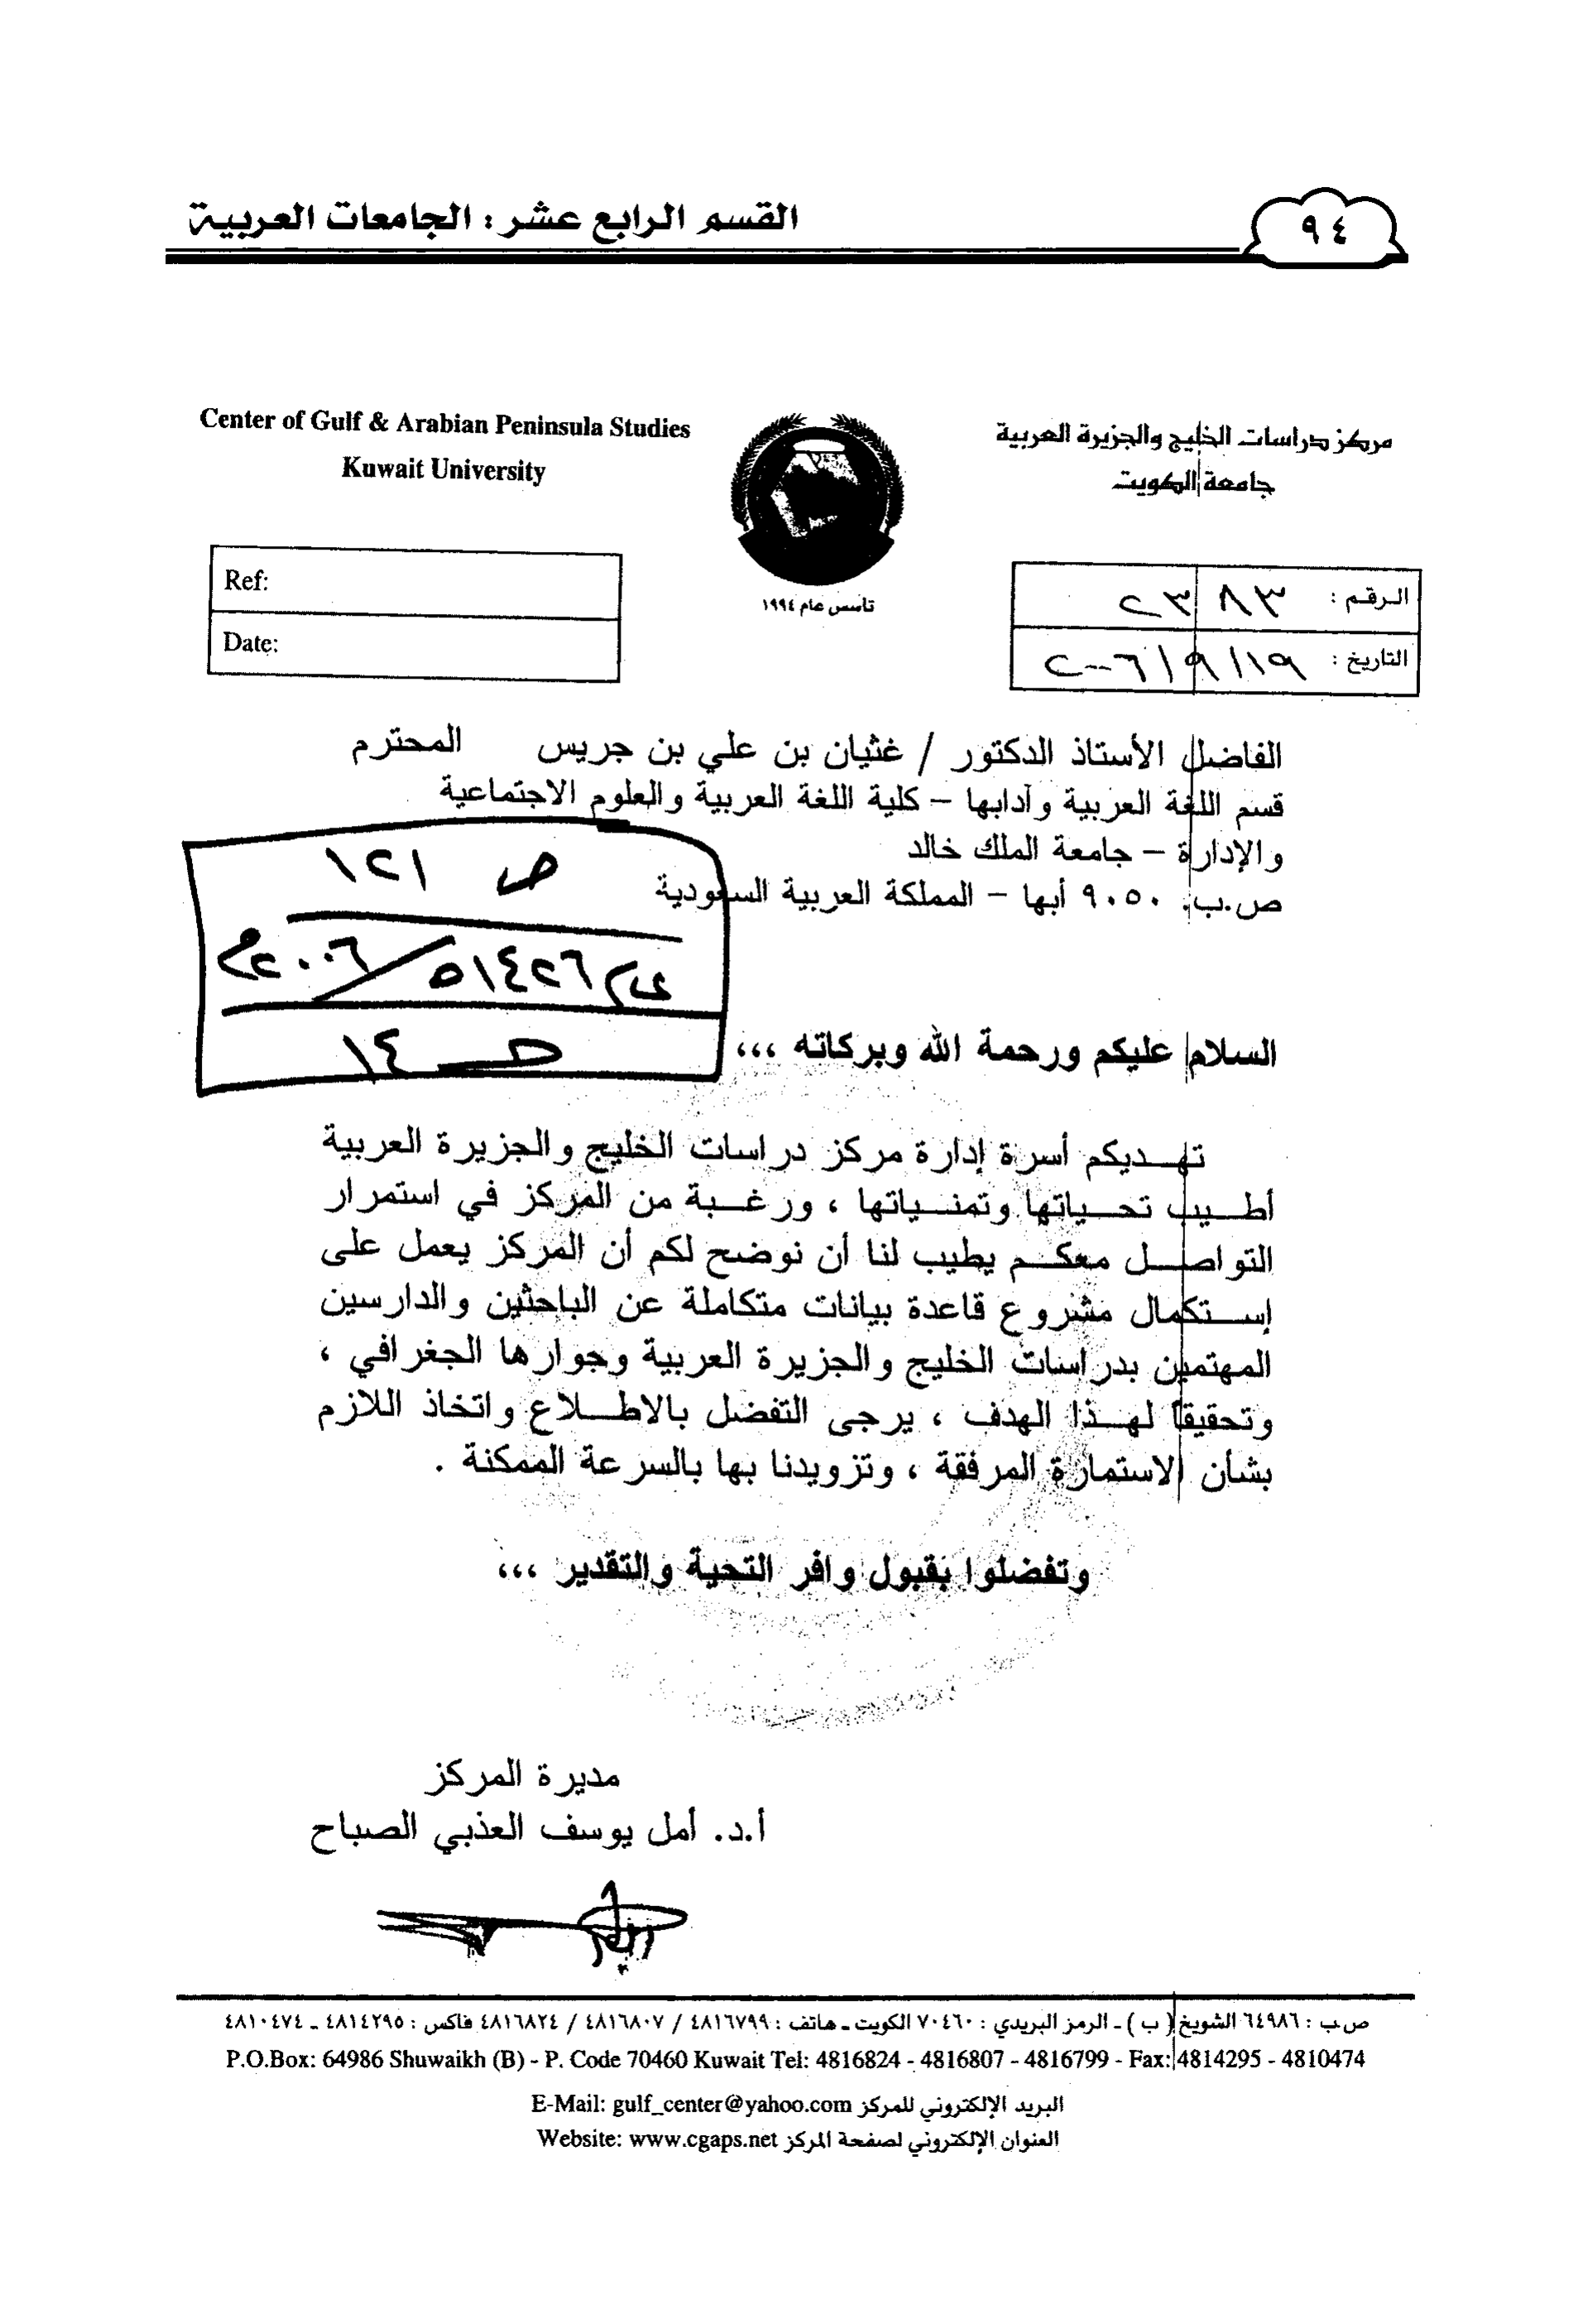 القسم الرابع عشر : الجامعات العربية
٩٤
Center of Gulf & Arabian Peninsula Studies
Kuwait University
مركز دراسات الخليج والجزيرة العربية
جامعة الكويت
تأسس عام ١٩٩٤
Ref:
Date:
الرقم : ٢٣٨٣
التاريخ : ١٩/٩/٢٠٠٦
الفاضل الأستاذ الدكتور / غثيان بن علي بن جريس المحترم
قسم اللغة العربية وآدابها – كلية اللغة العربية والعلوم الاجتماعية
والإدارة – جامعة الملك خالد
ص.ب. ٩٠٥٠ أبها – المملكة العربية السعودية
ص ١٢١
١٤٢٦هـ/٢٠٠٦م
ـ ١٤
السلام عليكم ورحمة الله وبركاته ،،،
تهديكم أسرة إدارة مركز دراسات الخليج والجزيرة العربية
أطيب تحياتها وتمنياتها ، ورغبة من المركز في استمرار
التواصل معكم يطيب لنا أن نوضح لكم أن المركز يعمل على
إستكمال مشروع قاعدة بيانات متكاملة عن الباحثين والدارسين
المهتمين بدراسات الخليج والجزيرة العربية وجوارها الجغرافي ،
وتحقيقاً لهذا الهدف ، يرجى التفضل بالاطلاع واتخاذ اللازم
بشأن الاستمارة المرفقة ، وتزويدنا بها بالسرعة الممكنة .
وتفضلوا بقبول وافر التحية والتقدير ،،،
مديرة المركز
أ.د. أمل يوسف العذبي الصباح
ص.ب : ٦٤٩٨٦ الشويخ ( ب ) ـ الرمز البريدي : ٧٠٤٦٠ الكويت ـ هاتف : ٤٨١٦٧٩٩ / ٤٨١٦٨٠٧ / ٤٨١٦٨٢٤ فاكس : ٤٨١٤٢٩٥ ـ ٤٨١٠٤٧٤
P.O.Box: 64986 Shuwaikh (B) - P. Code 70460 Kuwait Tel: 4816824 - 4816807 - 4816799 - Fax: 4814295 - 4810474
E-Mail: gulf_center@yahoo.com البريد الإلكتروني للمركز
Website: www.cgaps.net العنوان الإلكتروني لصفحة المركز